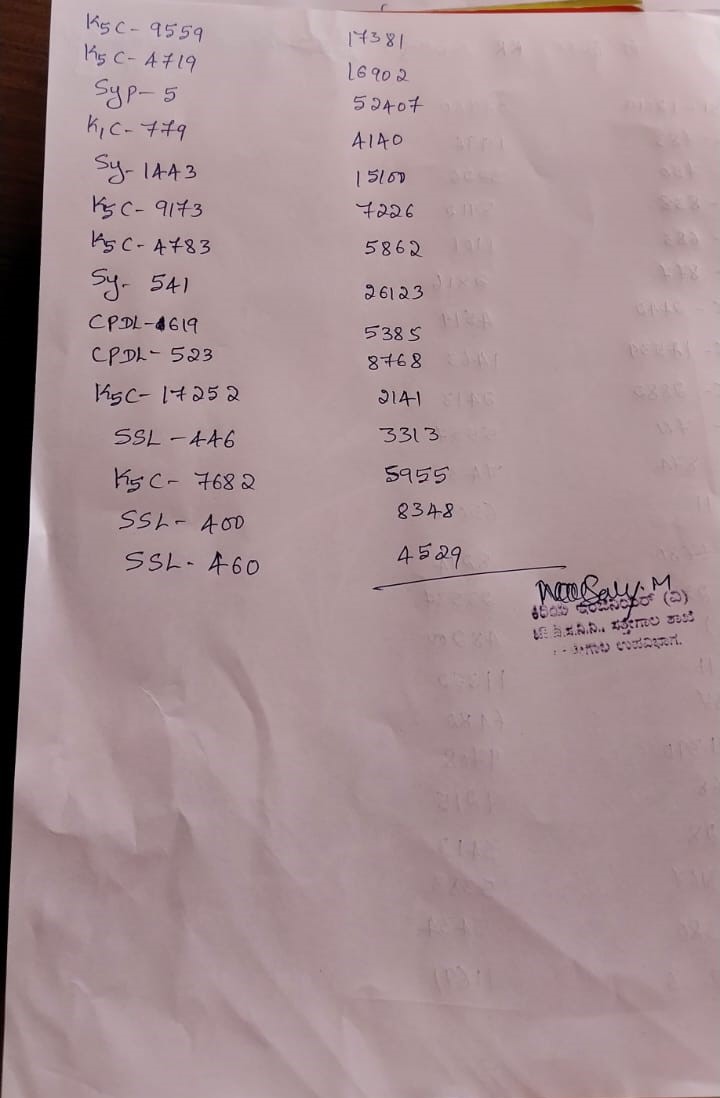 K5C- 9559 17381
K5C- 4719 16902
Syp- 5 52407
K1C- 779 4140
Sy- 1443 15100
K5C- 9173 7226
K5C- 4783 5862
Sy- 541 26123
CPDL-1619 5385
CPDL- 523 8768
K5C- 17252 2141
SSL -446 3313
K5C- 7682 5955
SSL- 400 8348
SSL- 460 4529
ಕಿರಿಯ ಇಂಜಿನಿಯರ್ (ವಿ)
ಸತ್ತೇಗಾಲ ಶಾಖೆ
ಉಪವಿಭಾಗ.